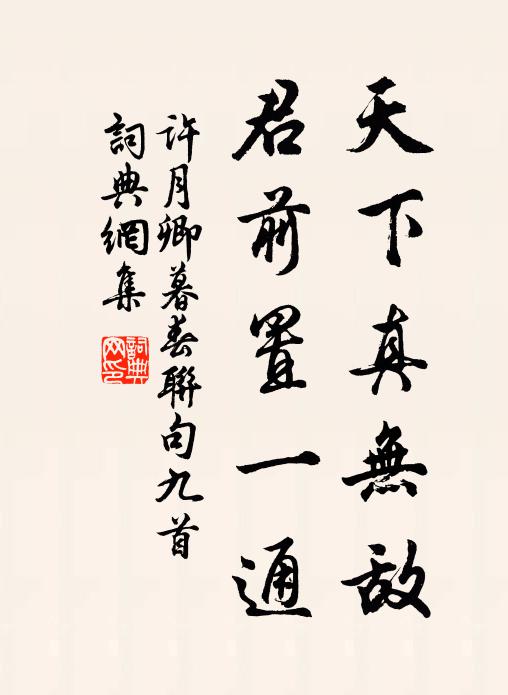 天下真無敵
君前置一通
許月卿暮春聯句九首
詞典網集
詞典網印